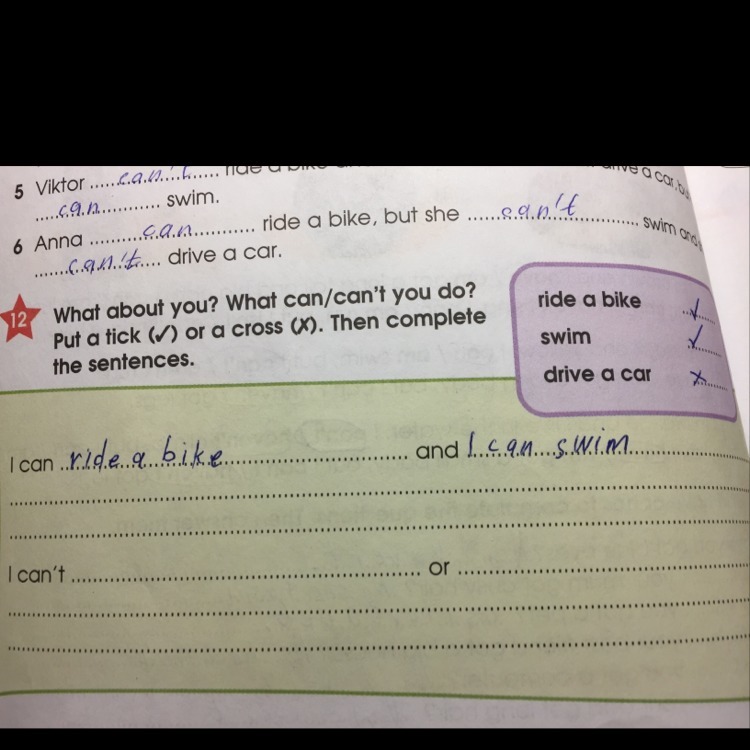 5 Viktor .....can't..... ride a bike
drive a car, bu
.....can........... swim.
6 Anna ..........can............ ride a bike, but she ......can't............. swim and
.......can't.... drive a car.
12 What about you? What can/can't you do?
Put a tick (✓) or a cross (✗). Then complete
the sentences.
ride a bike ..✓...
swim ✓.....
drive a car ✗.....
I can ..ride a bike.................................. and I can swim....................
I can't .................................................... or ............................................